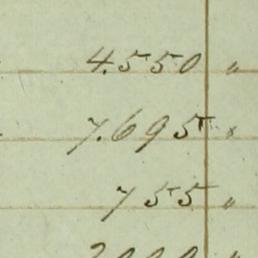 4.550 "
7.695 "
755 "